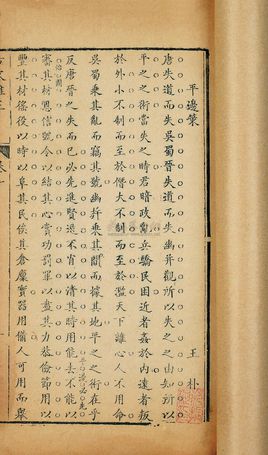 平邊策
王朴
唐失道而失吳蜀晉失道而失幽并觀所以失之之由知所以
平之之術當失之時君暗政亂兵驕民困近者姦於內遠者叛
於外小不制而至於僭大不制而至於濫天下離心人不用命
吳蜀乘其亂而竊其號幽并乘其間而據其地平之之術在乎
反唐晉之失而已必先進賢退不肖以清其時用能去不能以
審其材恩信號令以結其心賞功罰罪以盡其力恭儉節用以
豐其財徭役以時以阜其民俟其倉廩實器用備人可用而舉